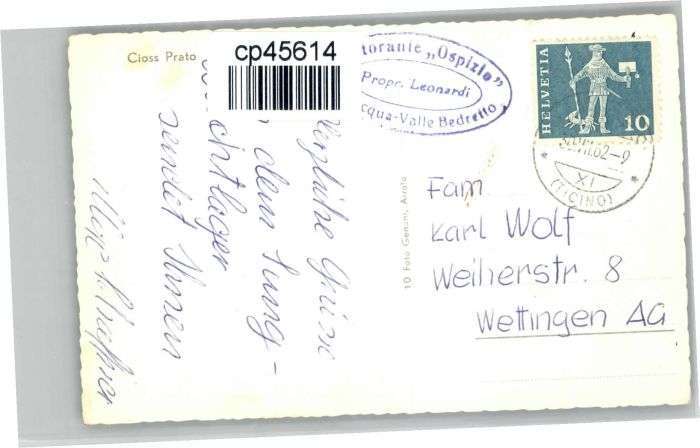 Cioss Prato
cp45614
torante „Ospizio"
Propr. Leonardi
cqua-Valle Bedretto
HELVETIA
10
62-9
XI
(TICINO)
Herzliche Grüsse
dem Lung-
chtlager
sendet Ihnen
10 Foto Genami, Airolo
Fam.
Karl Wolf
Weiherstr. 8
Wettingen AG